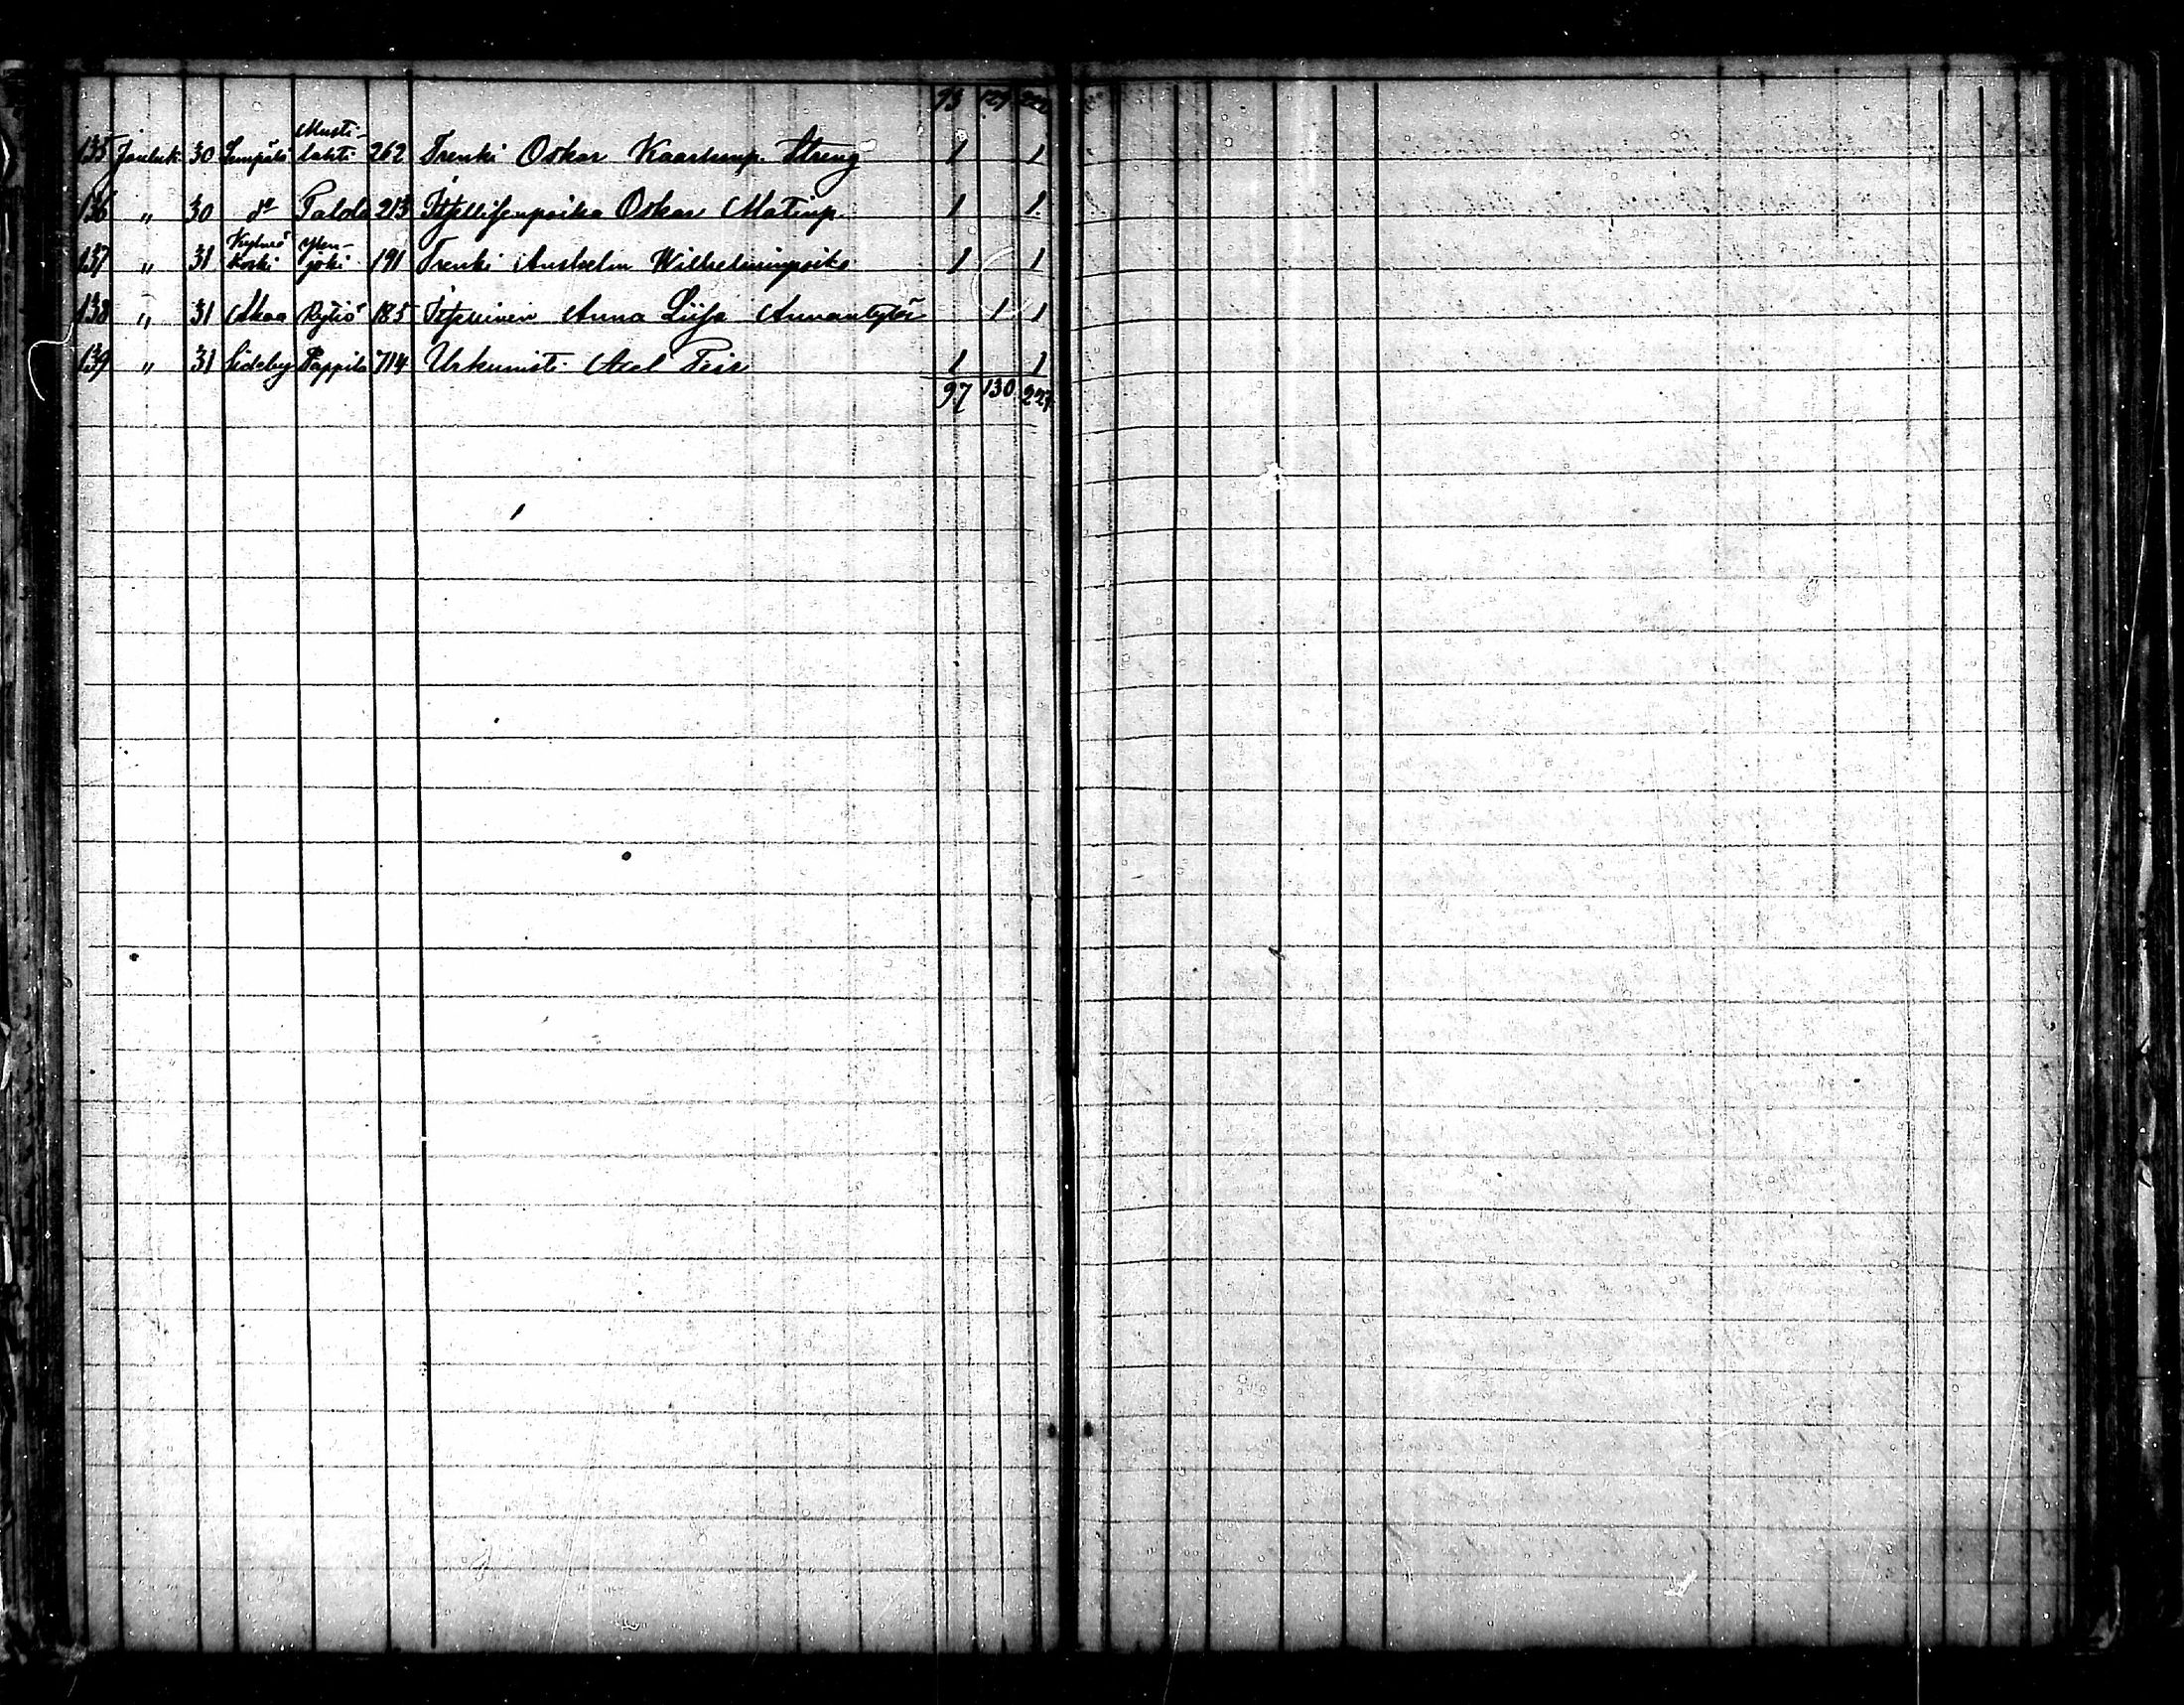 93 129 222
Musti-
135 Jouluk. 30 Lempälä lahti 262 Trenki Oskar Kaarlenp. Streng 1 1
136 " 30 d:o Talola 213 Itsellisenpoika Oskar Matinp. 1 1
Kylmä Ylen-
137 " 31 koski joki 191 Trenki Anshelm Wilhelminpoika 1 1
138 " 31 Akaa Kyliö 185 Itsellinen Anna Liisa Annantytär 1 1
139 " 31 Sideby Pappila 714 Urkunisti Axel 1 1
97 130 227